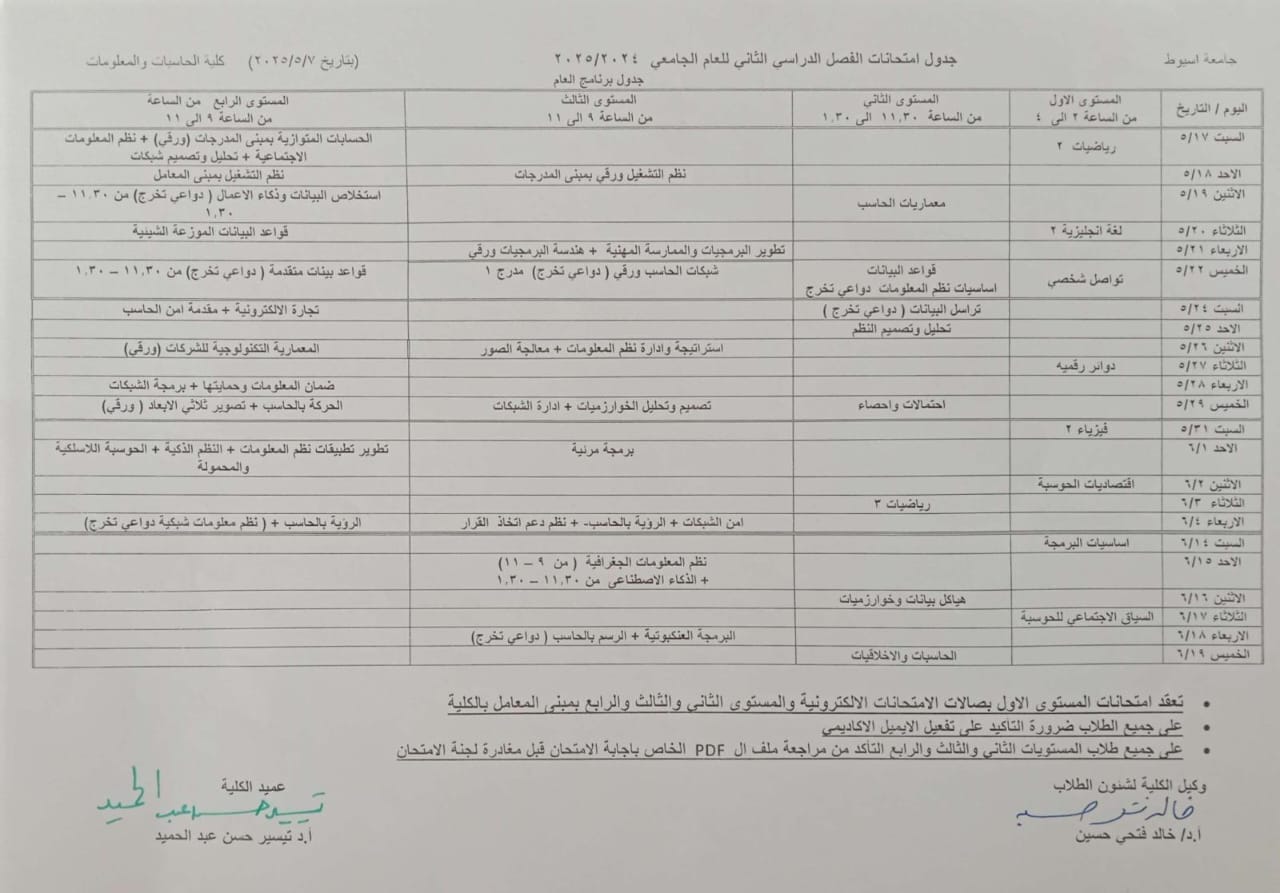 جامعة اسيوط
جدول امتحانات الفصل الدراسي الثاني للعام الجامعي ٢٠٢٥/٢٠٢٤
(بتاريخ ٢٠٢٥/٥/٧) كلية الحاسبات والمعلومات
جدول برنامج العام
اليوم / التاريخ
المستوى الاول
من الساعة ٢ الى ٤
المستوى الثاني
من الساعة ١١,٣٠ الى ١,٣٠
المستوى الثالث
من الساعة ٩ الى ١١
المستوى الرابع من الساعة
من الساعة ٩ الى ١١
السبت ٥/١٧
رياضيات ٢
الحسابات المتوازية بمبنى المدرجات (ورقي) + نظم المعلومات
الاجتماعية + تحليل وتصميم شبكات
الاحد ٥/١٨
نظم التشغيل ورقي بمبنى المدرجات
نظم التشغيل بمبنى المعامل
الاثنين ٥/١٩
معماريات الحاسب
استخلاص البيانات وذكاء الاعمال ( دواعي تخرج) من ١١,٣٠ –
١,٣٠
الثلاثاء ٥/٢٠
لغة انجليزية ٢
قواعد البيانات الموزعة الشيئية
الاربعاء ٥/٢١
تطوير البرمجيات والممارسة المهنية + هندسة البرمجيات ورقي
الخميس ٥/٢٢
تواصل شخصي
قواعد البيانات
اساسيات نظم المعلومات دواعي تخرج
شبكات الحاسب ورقي ( دواعي تخرج) مدرج ١
قواعد بينات متقدمة ( دواعي تخرج) من ١١,٣٠ – ١,٣٠
السبت ٥/٢٤
تراسل البيانات ( دواعي تخرج )
تجارة الالكترونية + مقدمة امن الحاسب
الاحد ٥/٢٥
تحليل وتصميم النظم
الاثنين ٥/٢٦
استراتيجة وادارة نظم المعلومات + معالجة الصور
المعمارية التكنولوجية للشركات (ورقي)
الثلاثاء ٥/٢٧
دوائر رقميه
الاربعاء ٥/٢٨
ضمان المعلومات وحمايتها + برمجة الشبكات
الخميس ٥/٢٩
احتمالات واحصاء
تصميم وتحليل الخوارزميات + ادارة الشبكات
الحركة بالحاسب + تصوير ثلاثي الابعاد ( ورقي)
السبت ٥/٣١
فيزياء ٢
الاحد ٦/١
برمجة مرئية
تطوير تطبيقات نظم المعلومات + النظم الذكية + الحوسبة اللاسلكية
والمحمولة
الاثنين ٦/٢
اقتصاديات الحوسبة
الثلاثاء ٦/٣
رياضيات ٣
الاربعاء ٦/٤
امن الشبكات + الرؤية بالحاسب- + نظم دعم اتخاذ القرار
الرؤية بالحاسب + ( نظم معلومات شبكية دواعي تخرج)
السبت ٦/١٤
اساسيات البرمجة
الاحد ٦/١٥
نظم المعلومات الجغرافية ( من ٩ – ١١)
+ الذكاء الاصطناعي من ١١,٣٠ – ١,٣٠
الاثنين ٦/١٦
هياكل بيانات وخوارزميات
الثلاثاء ٦/١٧
السياق الاجتماعي للحوسبة
الاربعاء ٦/١٨
البرمجة العنكبوتية + الرسم بالحاسب ( دواعي تخرج)
الخميس ٦/١٩
الحاسبات والاخلاقيات
• تعقد امتحانات المستوى الاول بصالات الامتحانات الالكترونية والمستوى الثاني والثالث والرابع بمبنى المعامل بالكلية
• على جميع الطلاب ضرورة التأكيد على تفعيل الايميل الاكاديمي
• على جميع طلاب المستويات الثاني والثالث والرابع التأكد من مراجعة ملف ال PDF الخاص باجابة الامتحان قبل مغادرة لجنة الامتحان
وكيل الكلية لشئون الطلاب
خالد فتحي حسين
أ.د/ خالد فتحي حسين
عميد الكلية
تيسير حسن عبد الحميد
أ.د تيسير حسن عبد الحميد